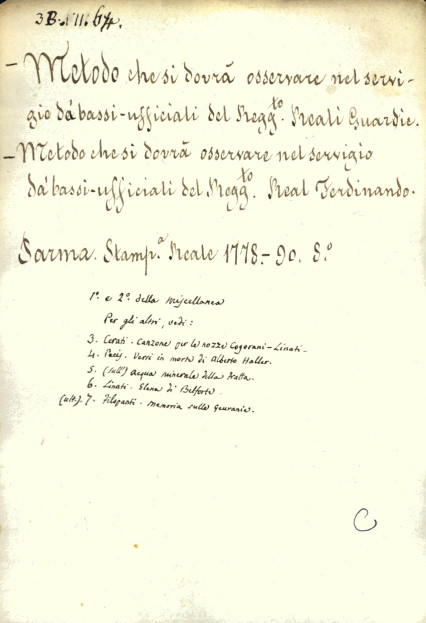 3B.VII.64.
– Metodo che si dovrà osservare nel servi-
gio da' bassi-ufficiali del Regg.to Reali Guardie.
– Metodo che si dovrà osservare nel servigio
da' bassi-ufficiali del Regg.to Real Ferdinando.
Parma. Stamp.a Reale 1778.-90. 8.o
1o. e 2o. della miscellanea
Per gli altri, vedi:
3. Cerati. Canzone per le nozze Cogorani-Linati.
4. Versi in morte di Alberto Haller.
5. (sull') Acqua minerale della
6. Linati. Elena di Belforte
(ult.) 7. Filopanti. Memoria sulle
C